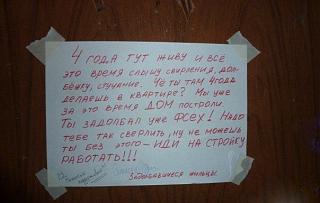 4 ГОДА ТУТ ЖИВУ И ВСЁ
ЭТО ВРЕМЯ СЛЫШУ СВЕРЛЕНИЯ, ДОЛ-
БЁЖКУ, СТУЧАНИЕ. ЧЁ ТЫ ТАМ 4 ГОДА
ДЕЛАЕШЬ В КВАРТИРЕ? МЫ УЖЕ
ЗА ЭТО ВРЕМЯ ДОМ ПОСТРОЛИ.
ТЫ ЗАДОЛБАЛ УЖЕ ФСЕХ! НАДО
ТЕБЕ ТАК СВЕРЛИТЬ, НУ НЕ МОЖЕШЬ
ТЫ БЕЗ ЭТОГО – ИДИ НА СТРОЙКУ
РАБОТАТЬ!!!
Задолбавшиеся жильцы.